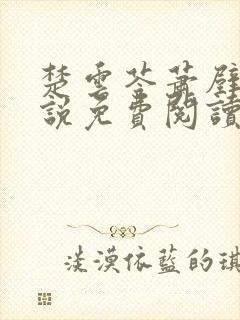 楚雲苓蕭壁
說免費閱讀
淡漠依藍的琪